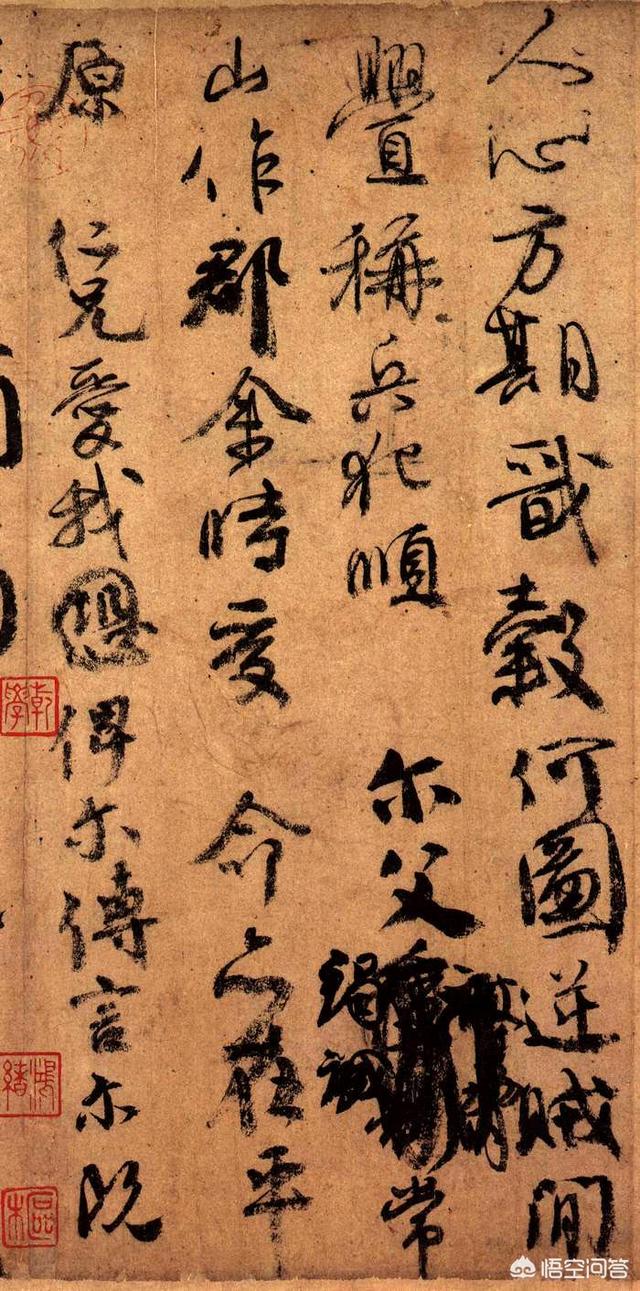 人心方期戩穀何圖逆賊間
釁稱兵犯順 尔父竭誠常
山作郡余時受 命亦在平
原 仁兄愛我恐俾尔傳言尔既
乾學
鴻緒
悟空问答